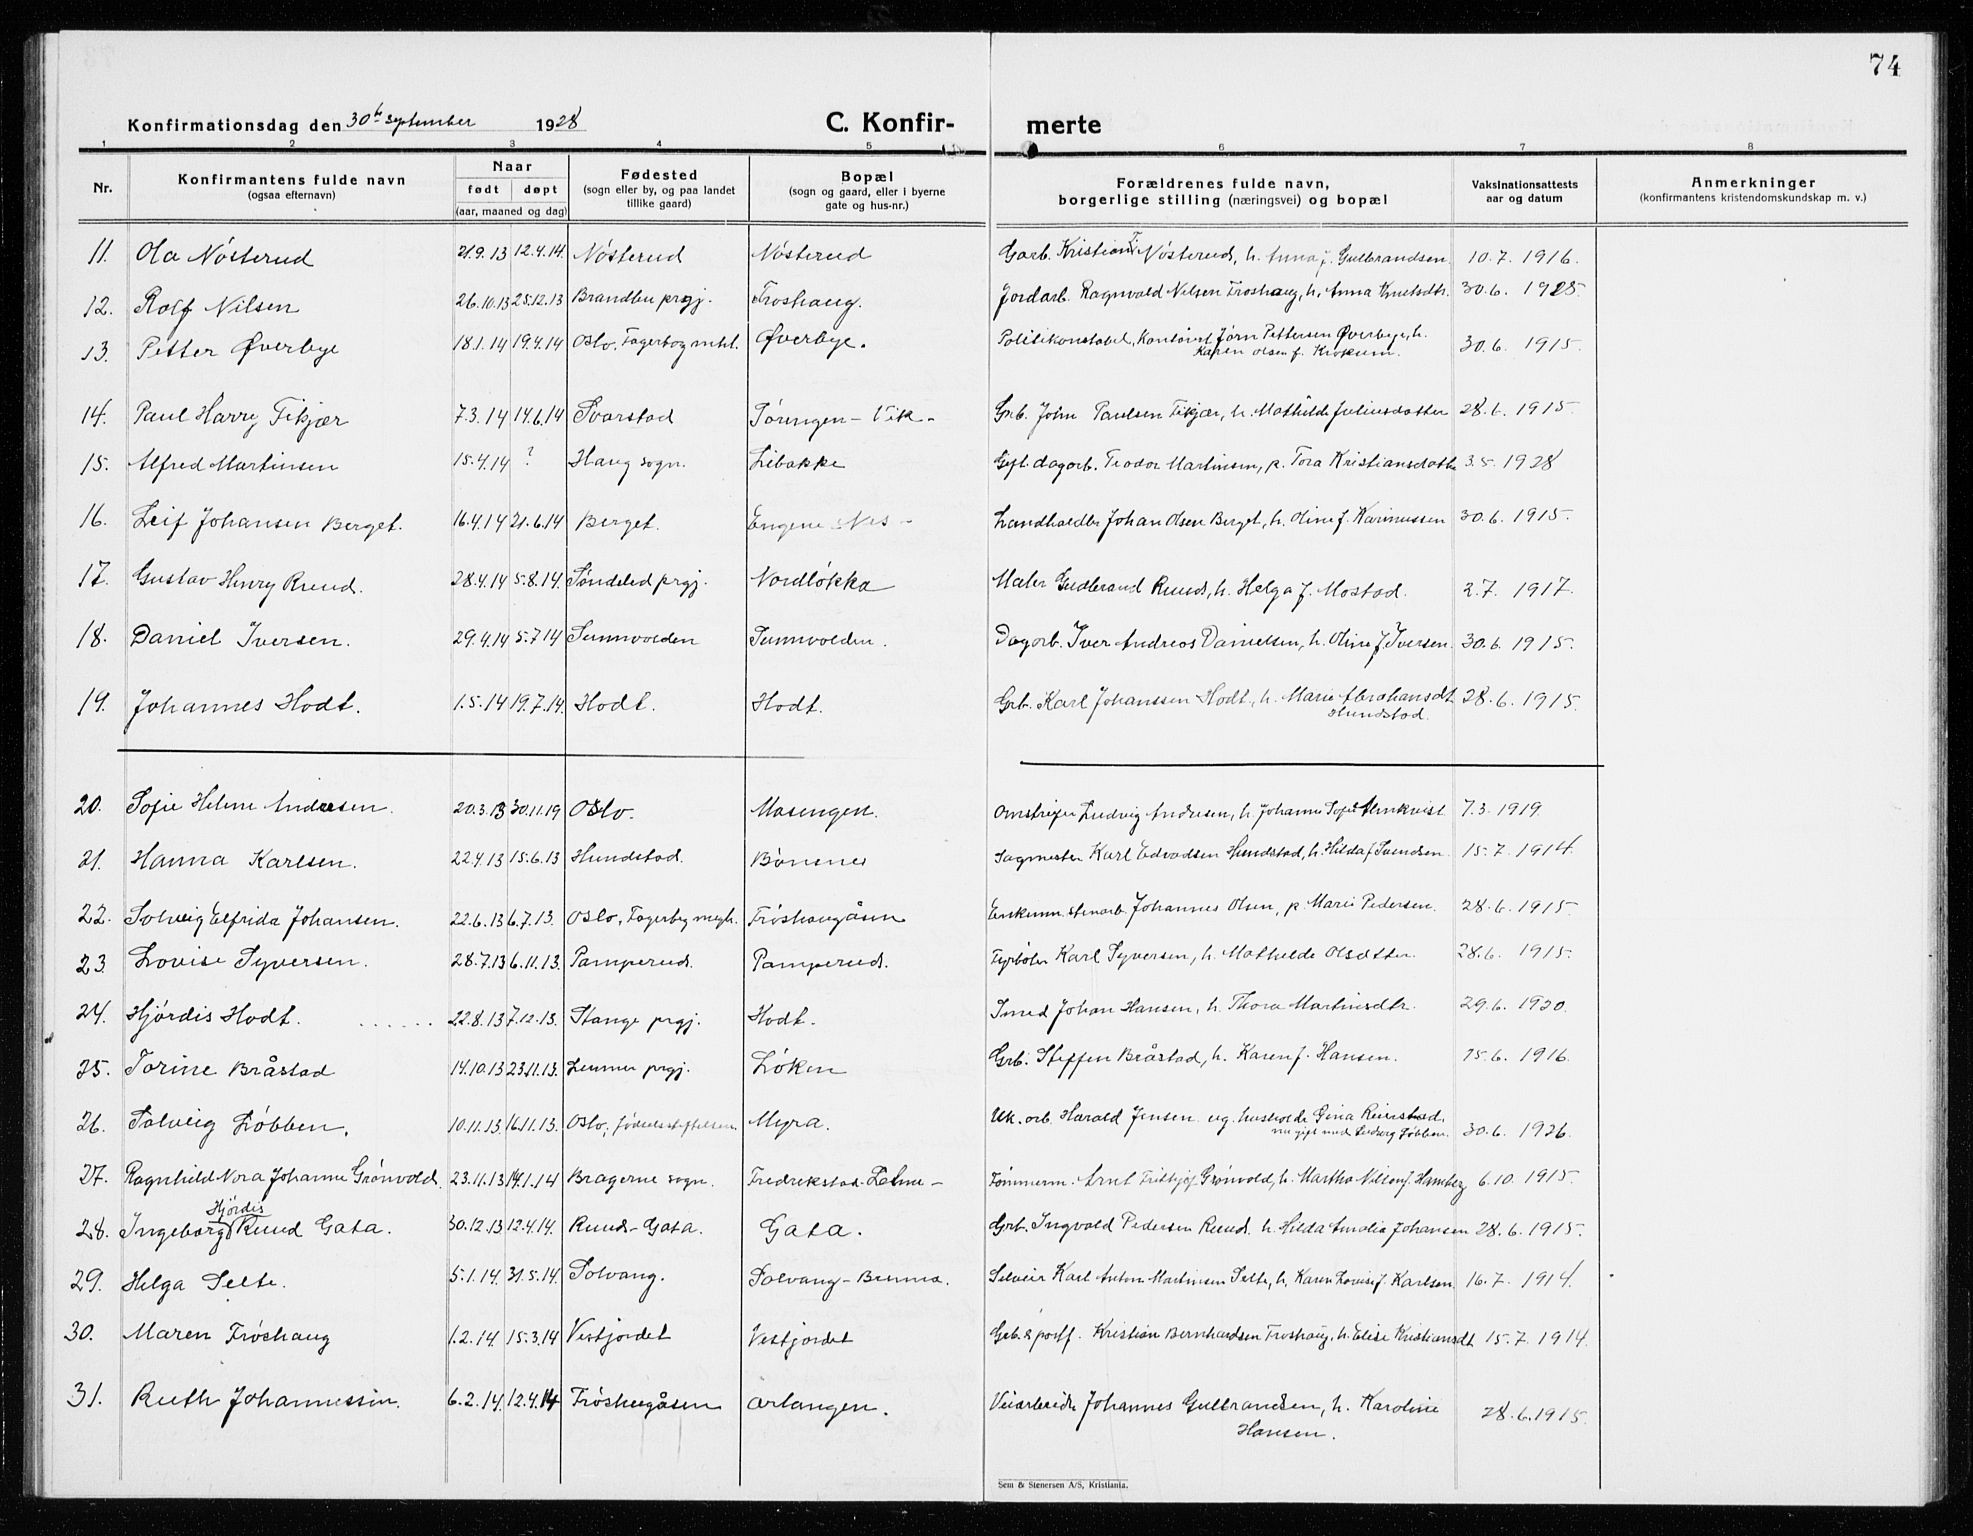 74
Konfirmationsdag den 30te september 1928
C. Konfir- merte
1 2 3 4 5 6 7 8
Nr.
Konfirmantens fulde navn
(ogsaa efternavn)
Naar
født døpt
(aar, maaned og dag)
Fødested
(sogn eller by, og paa landet
tillike gaard)
Bopæl
(sogn og gaard, eller i byerne
gate og hus-nr.)
Forældrenes fulde navn,
borgerlige stilling (næringsvei) og bopæl
Vaksinationsattests
aar og datum
Anmerkninger
(konfirmantens kristendomskundskap m. v.)
11. Ola Nösterud 21.9.13 12.4.14. Nösterud Nösterud Garb. Kristian T. Nösterud, h. Anna f. Gulbrandsen 10.7. 1916.
12. Rolf Nilsen 26.10.13 25.12.13 Brandbu prgj. Froshaug. Jordarb. Ragnvald Nilsen Froshaug, h. Anna Knutsdtr. 30.6. 1925.
13. Petter Øverbye 18.1.14 19.4.14 Oslo, Fagerborg mht. Øverbye. Politikonstabel, Jörn Pettersen Øverbye, h.
Karen Olsen f. Krokum. 30.6. 1915.
14. Paul Harry Fikjær 7.3.14 14.6.14 Svarstad Töringen - Vik - Grb. John Paulsen Fikjær, h. Mathilde Juliusdatter 28.6. 1915.
15. Alfred Martinsen 15.4.14 ? Haug sogn. Libakke Gift dagarb. Teodor Martinsen, p. Tora Kristiansdatter 3.5. 1928
16. Leif Johansen Berget. 16.4.14 21.6.14 Berget. Engene Nes - Landhandler Johan Olsen Berget, h. Oline f. Karinussen 30.6. 1915.
17. Gustav Henry Ruud. 28.4.14 5.8.14. Söndeled prgj. Nordlökka Maler Gudbrand Ruud, h. Helga f. Mostad. 2.7. 1917.
18. Daniel Iversen. 29.4.14 5.7.14 Sunnvolden Sunnvolden. Dagarb. Iver Andreas Danielsen, h. Oline f. Iversen. 30.6. 1915.
19. Johannes Hodt. 1.5.14 19.7.14. Hodt. Hodt. Grb. Karl Johanssen Hodt, h. Marie Abrahamsdt. 28.6. 1915.
Hundstad.
20. Sofie Helene Andresen. 20.3.13 30.11.19 Oslo. Mosengen. Omstreifer Ludvig Andresen, h. Johanne Sofie Almkvist 7.3. 1919.
21. Hanna Karlsen. 22.4.13 15.6.13 Hundstad. Bönsnes Sagmester Karl Edvardsen Hundstad, h. Hilda f. Svendsen. 15.7. 1914.
22. Solveig Elfrida Johansen. 22.6.13 6.7.13. Oslo, Fagerborg mgh. Fröshaugåsen Enkem. stenarb. Johannes Olsen, p. Marie Pedersen. 28.6. 1915.
23. Lovise Syversen. 28.7.13 6.11.13. Pamperud. Pamperud. Fyrböter Karl Syversen, h. Mathilde Olsdatter. 28.6. 1915.
24. Hjördis Hodt. 22.8.13 7.12.13. Stange prgj. Hodt. Smed Johan Hansen, h. Thora Martinsdtr. 29.6. 1920.
25. Torine Bråstad 14.10.13 23.11.13. Lunner prgj. Löken Grb. Steffen Bråstad, h. Karen f. Hansen. 15.6. 1916.
26. Solveig Löbben. 10.11.13 16.11.13. Oslo, födselsstiftelsen. Myra. Uk. arb. Harald Jensen og husholde Gina Reierstad.
nu gift med Ludvig Löbben. 30.6. 1926.
27. Ragnhild Nora Johanne Grönvold. 23.11.13 14.1.14 Bragerne sogn. Fredrekstad - Tömmerm. Arnt Fritkjof Grönvold, h. Martha Nilsen f. Hamberg 6.10. 1915.
28. Ingeborg Hjördis Ruud Gata. 30.12.13 12.4.14. Ruud-Gata. Gata. Grb. Ingvald Pedersen Ruud. h. Hilda Amalia Johansen 28.6. 1915.
29. Helga Selte. 5.1.14. 31.5.14. Solvang. Solvang - Selveier Karl Anton Martinsen Selte, h. Karen Lovise f. Karlsen 16.7. 1914.
30. Maren Fröshaug 1.2.14. 15.3.14 Vestjordet Vestjordet Grb. & Kristian Bernhardsen Froshaug, h. Elise Kristiansdt 15.7. 1914.
31. Ruth Johannessen. 6.2.14. 12.4.14 Fröshaugåsen Årtangen. Veiarbeider Johannes Gulbrandsen, h. Karoline
Hansen. 28.6.1915.
Sem & Stenersen A/S, Kristiania.